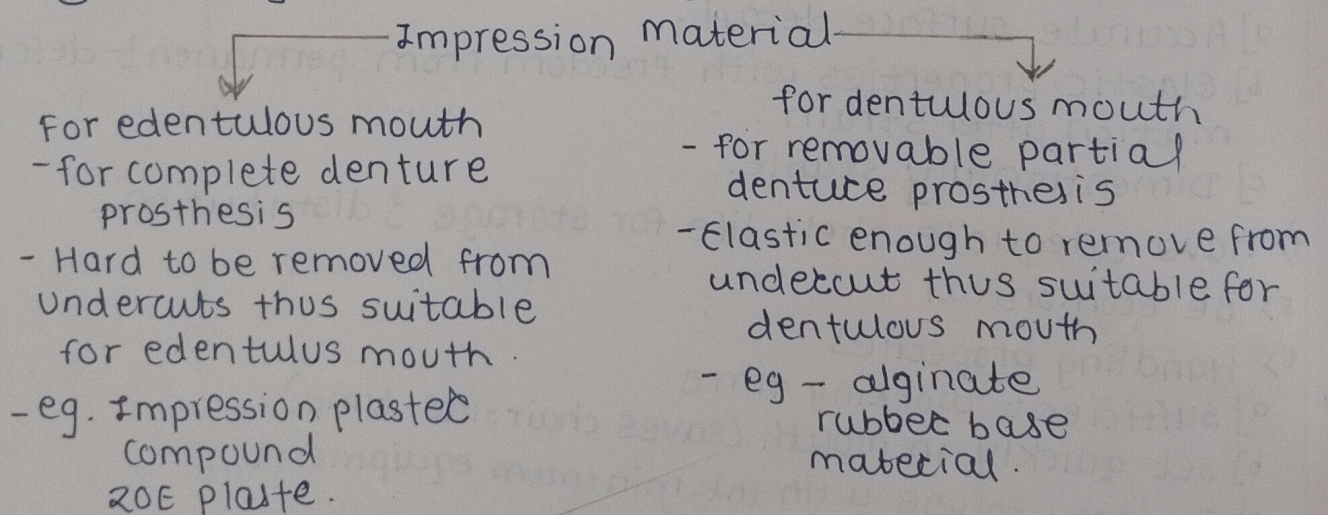 Impression material
For edentulous mouth
- for complete denture
prosthesis
- Hard to be removed from
undercuts thus suitable
for edentulus mouth.
- eg. Impression plaster
compound
ZOE plaste.
for dentulous mouth
- for removable partial
denture prosthesis
- Elastic enough to remove from
undercut thus suitable for
dentulous mouth
- eg - alginate
rubber base
material.